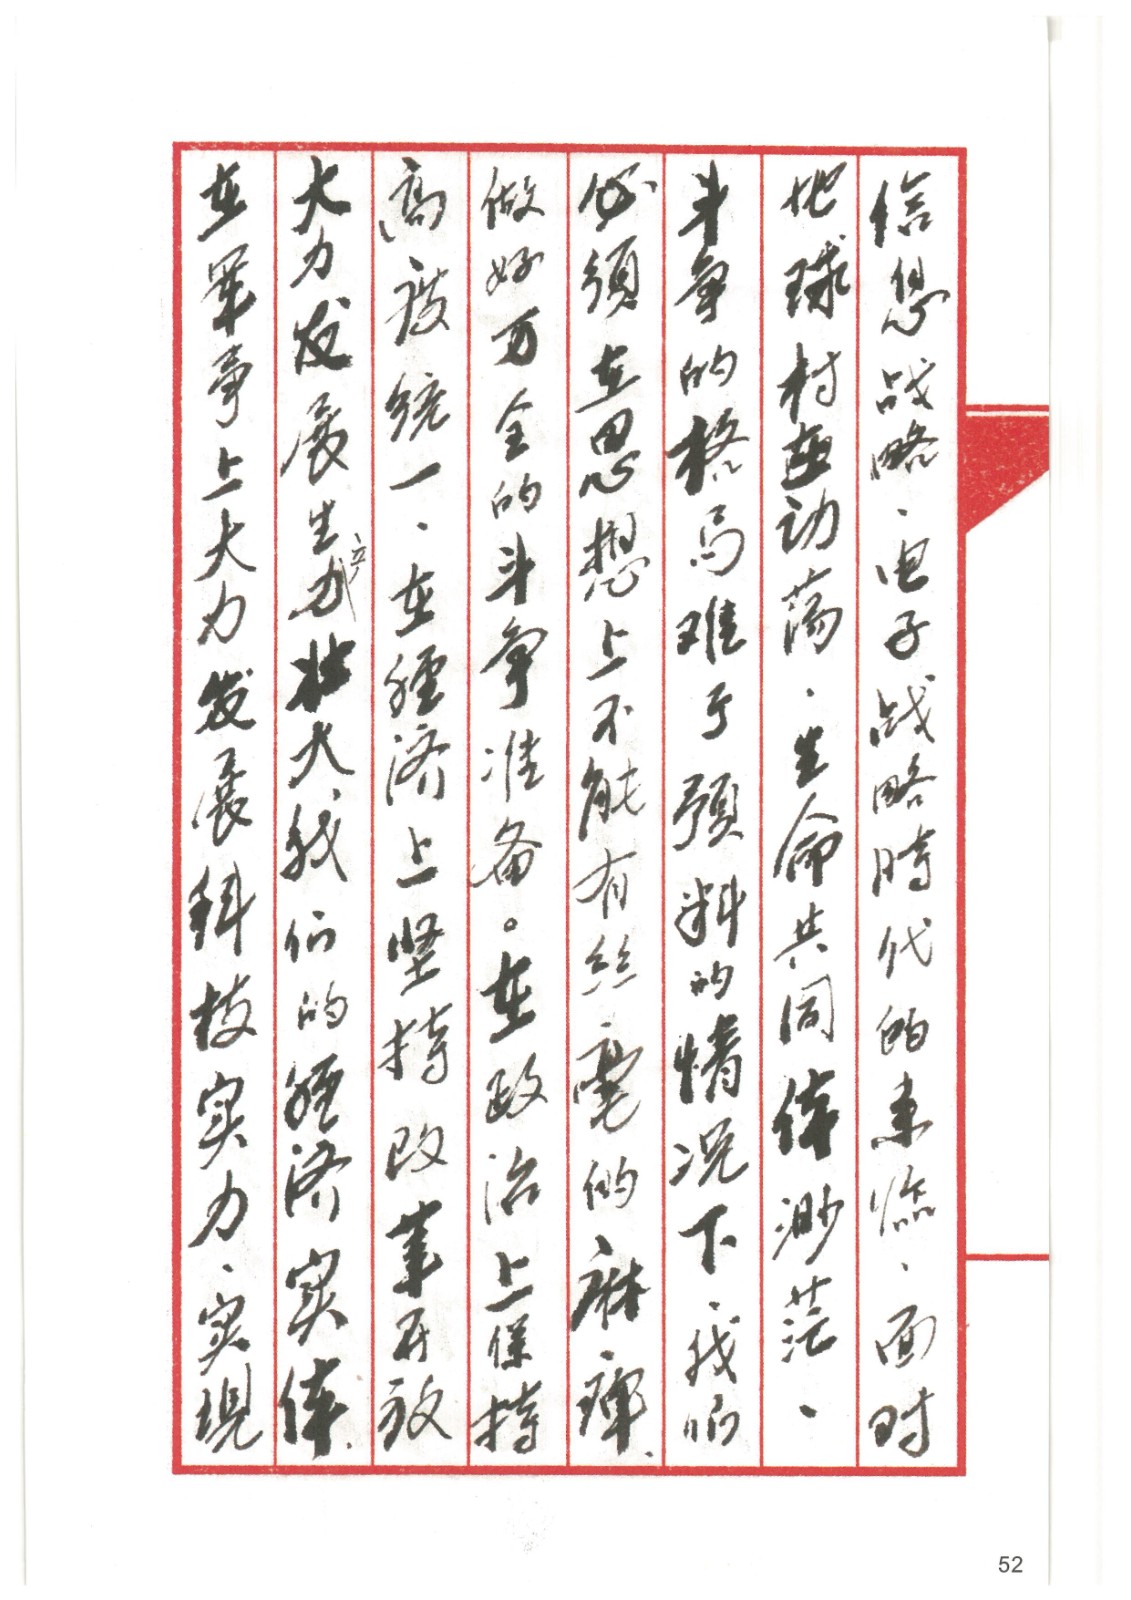 信息战略、电子战略時代的来临、面对
地球村在动荡、生命共同体渺茫、
斗争的格局难于预料的情况下、我们
必须在思想上不能有丝毫的麻痹、
做好万全的斗争准备。在政治上保持
高度统一、在经济上坚持改革开放
大力发展生产力壮大我们的经济实体、
在軍事上大力发展科技实力、实現
52